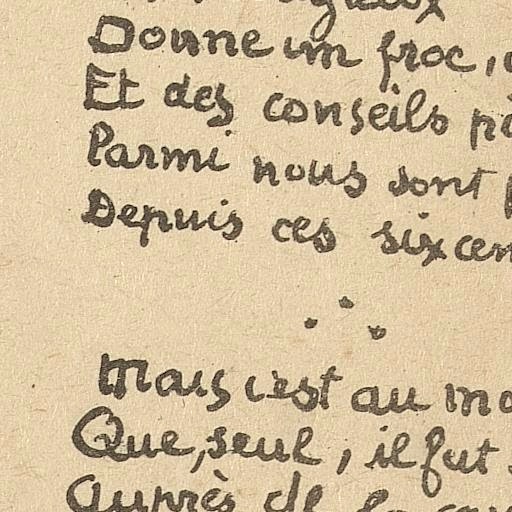 Donne un froc,
Et des conseils
Parmi nous sont
Depuis ces six cen
Mais c'est au mo
Que, seul, il fut
Auprès de